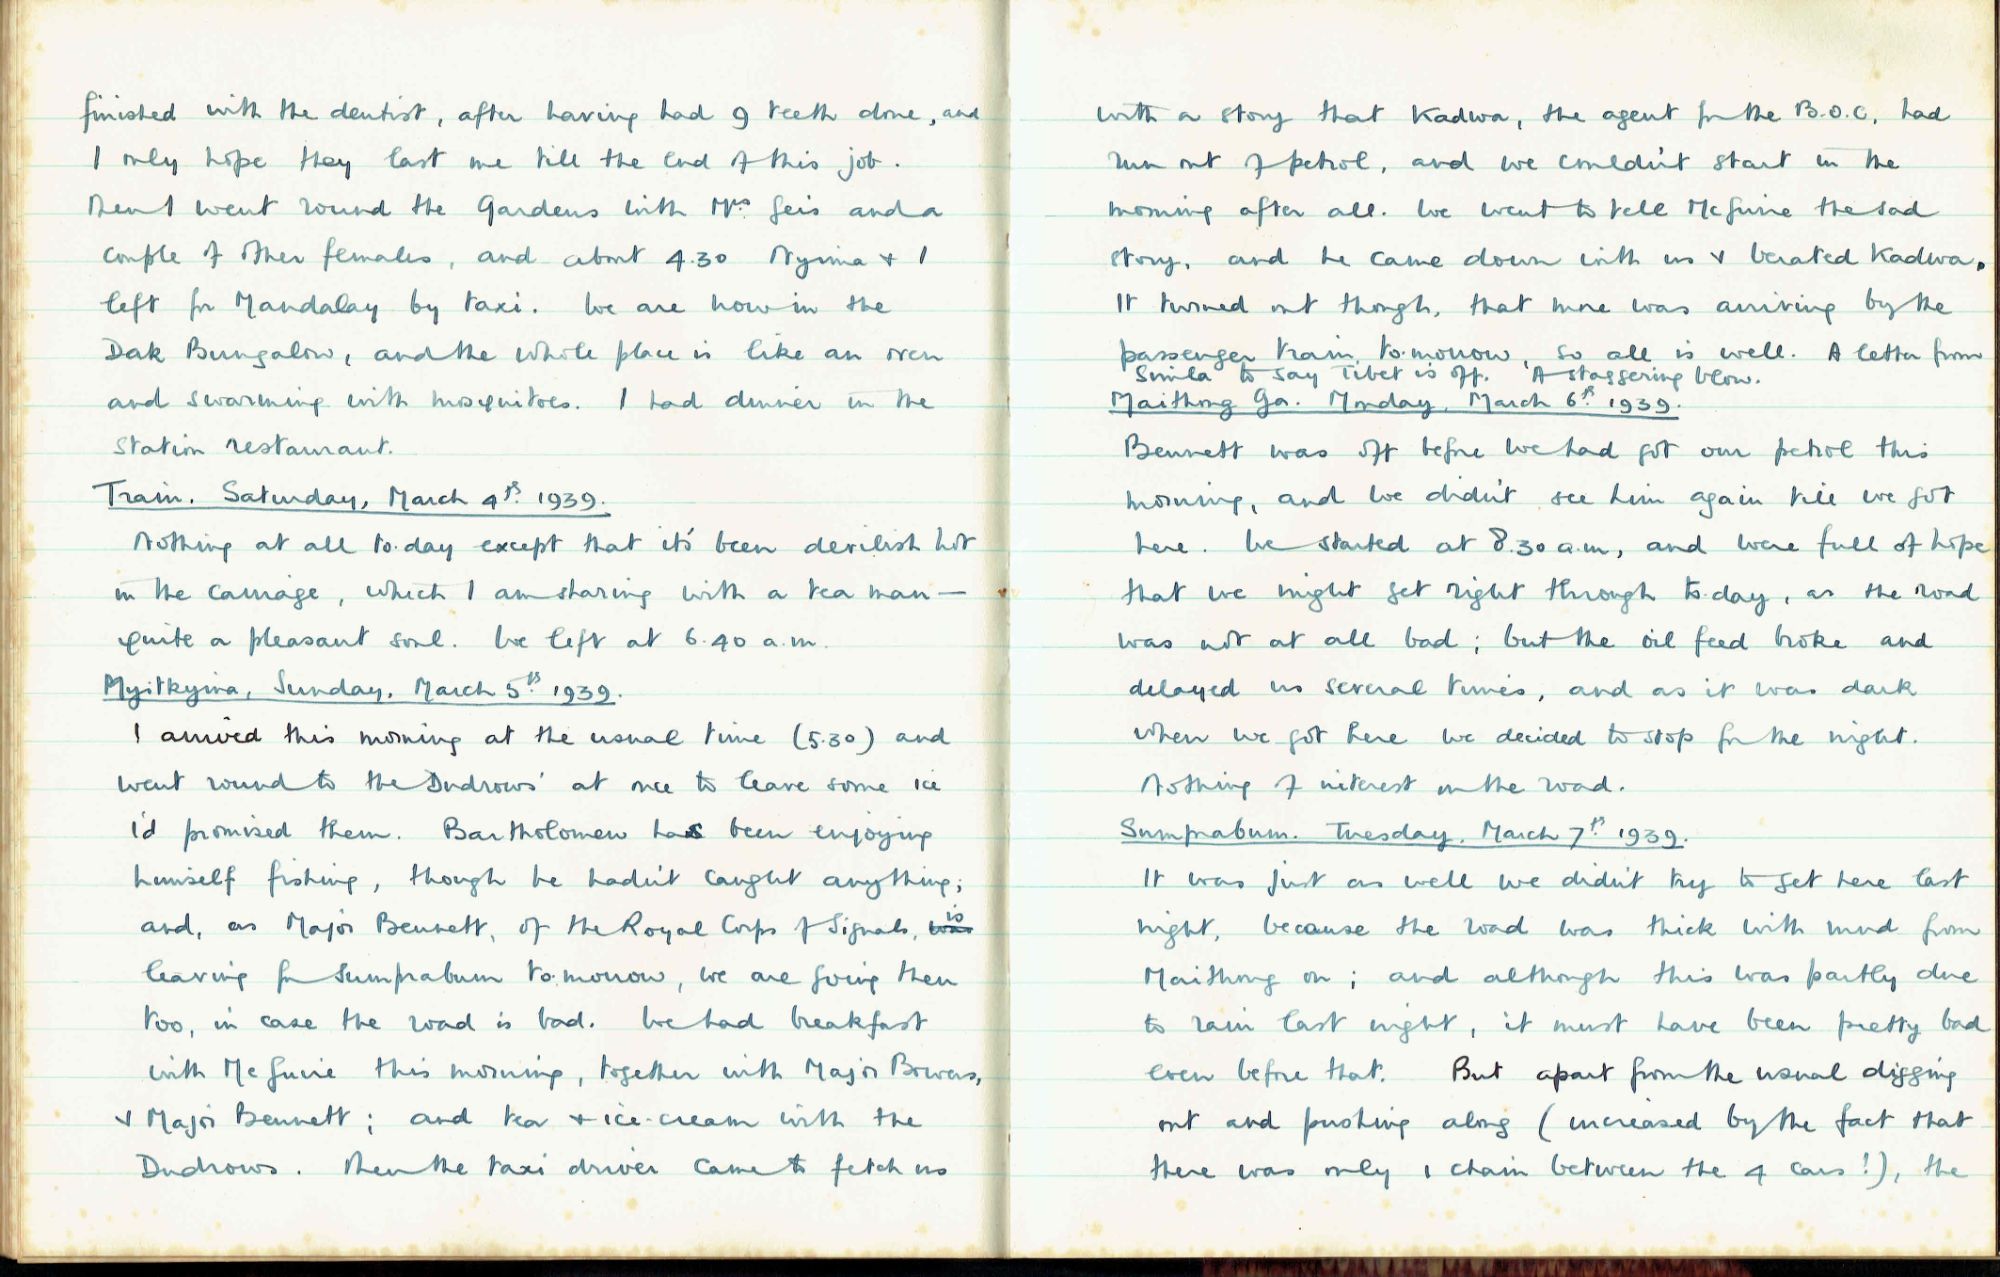 finished with the dentist, after having had 9 teeth done, and
I only hope they last me till the end of this job.
Then I went round the Gardens with Mrs Geis and a
couple of other females, and about 4.30 Nyima + I
left for Mandalay by taxi. We are now in the
Dak Bungalow, and the whole place is like an oven
and swarming with mosquitoes. I had dinner in the
station restaurant.
Train. Saturday, March 4th 1939.
Nothing at all to-day except that it's been devilish hot
in the carriage, which I am sharing with a tea man —
quite a pleasant soul. We left at 6.40 a.m.
Myitkyina, Sunday, March 5th 1939.
I arrived this morning at the usual time (5.30) and
went round to the Dudrows' at once to leave some ice
I'd promised them. Bartholomew has been enjoying
himself fishing, though he hadn't caught anything;
and, as Major Bennett, of the Royal Corps of Signals, was is
leaving for Sumprabum to-morrow, we are going then
too, in case the road is bad. We had breakfast
with McGuire this morning, together with Major Bowers,
+ Major Bennett; and tea + ice-cream with the
Dudrows. Then the taxi driver came to fetch us
with a story that Kadwa, the agent for the B.O.C, had
run out of petrol, and we couldn't start in the
morning after all. We went to tell McGuire the sad
story, and he came down with us + berated Kadwa.
It turned out though, that more was arriving by the
passenger train to-morrow, so all is well. A letter from
Simla to say Tibet is off. A staggering blow.
Maithong Ga. Monday, March 6th 1939.
Bennett was off before we had got our petrol this
morning, and we didn't see him again till we got
here. We started at 8.30 a.m, and were full of hope
that we might get right through to-day, as the road
was not at all bad; but the oil feed broke and
delayed us several times, and as it was dark
when we got here we decided to stop for the night.
Nothing of interest on the road.
Sumprabum. Tuesday, March 7th 1939.
It was just as well we didn't try to get here last
night, because the road was thick with mud from
Maithong on; and although this was partly due
to rain last night, it must have been pretty bad
even before that. But apart from the usual digging
out and pushing along (increased by the fact that
there was only 1 chain between the 4 cars!), the